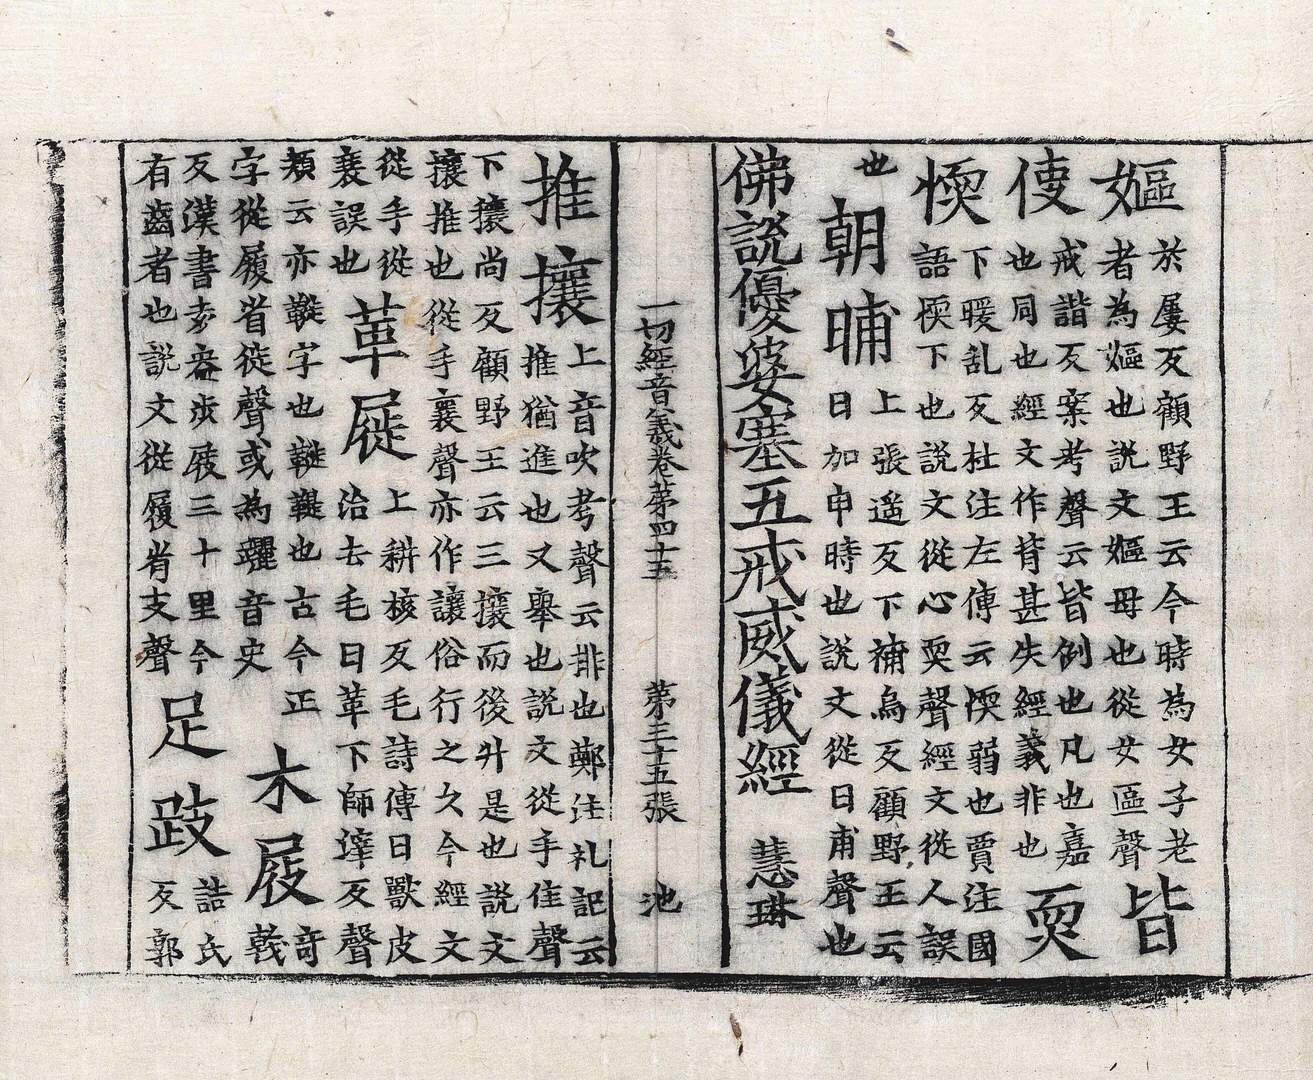 嫗
於屢反顧野王云今時為女子老
者為嫗也說文嫗母也從女區聲
皆
使
戒諧反案考聲云皆例也凡也嘉
也同也經文作背甚失經義非也
耎
愞
下暖乱反杜注左傳云愞弱也賈注國
語愞下也說文從心耎聲經文從人誤
也
朝晡
上張遥反下補烏反顧野王云
日加申時也說文從日甫聲也
佛說優婆塞五戒威儀經 慧琳
一切經音義卷第四十五 第三十五張 池
推攘
上音吹考聲云排也鄭注礼記云
推猶進也又舉也說文從手隹聲
下攘尚反顧野王云三攘而後升是也說文
攘推也從手襄聲亦作讓俗行之久今經文
從手從
襄誤也
革屣
上耕核反毛詩傳曰獸皮
治去毛曰革下師滓反聲
類云亦字也鞮也古今正
字從履省徙聲或為躧音史
木屐
竒
義
反漢書袁盎步屐三十里今
有齒者也說文從履省支聲
足跂
詰氏
反郭